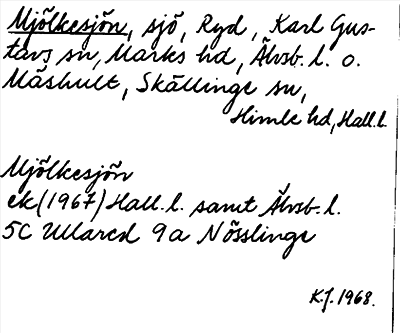 Mjölkesjön, sjö, Ryd, Karl Gus-
tavs sn, Marks hd, Älvsb. l. o.
Mäshult, Skällinge sn,
Himle hd, Hall. l.
Mjölkesjön
ek (1967) Hall. l. samt Älvsb. l.
5C Ullared 9a Nösslinge
K.J. 1968.